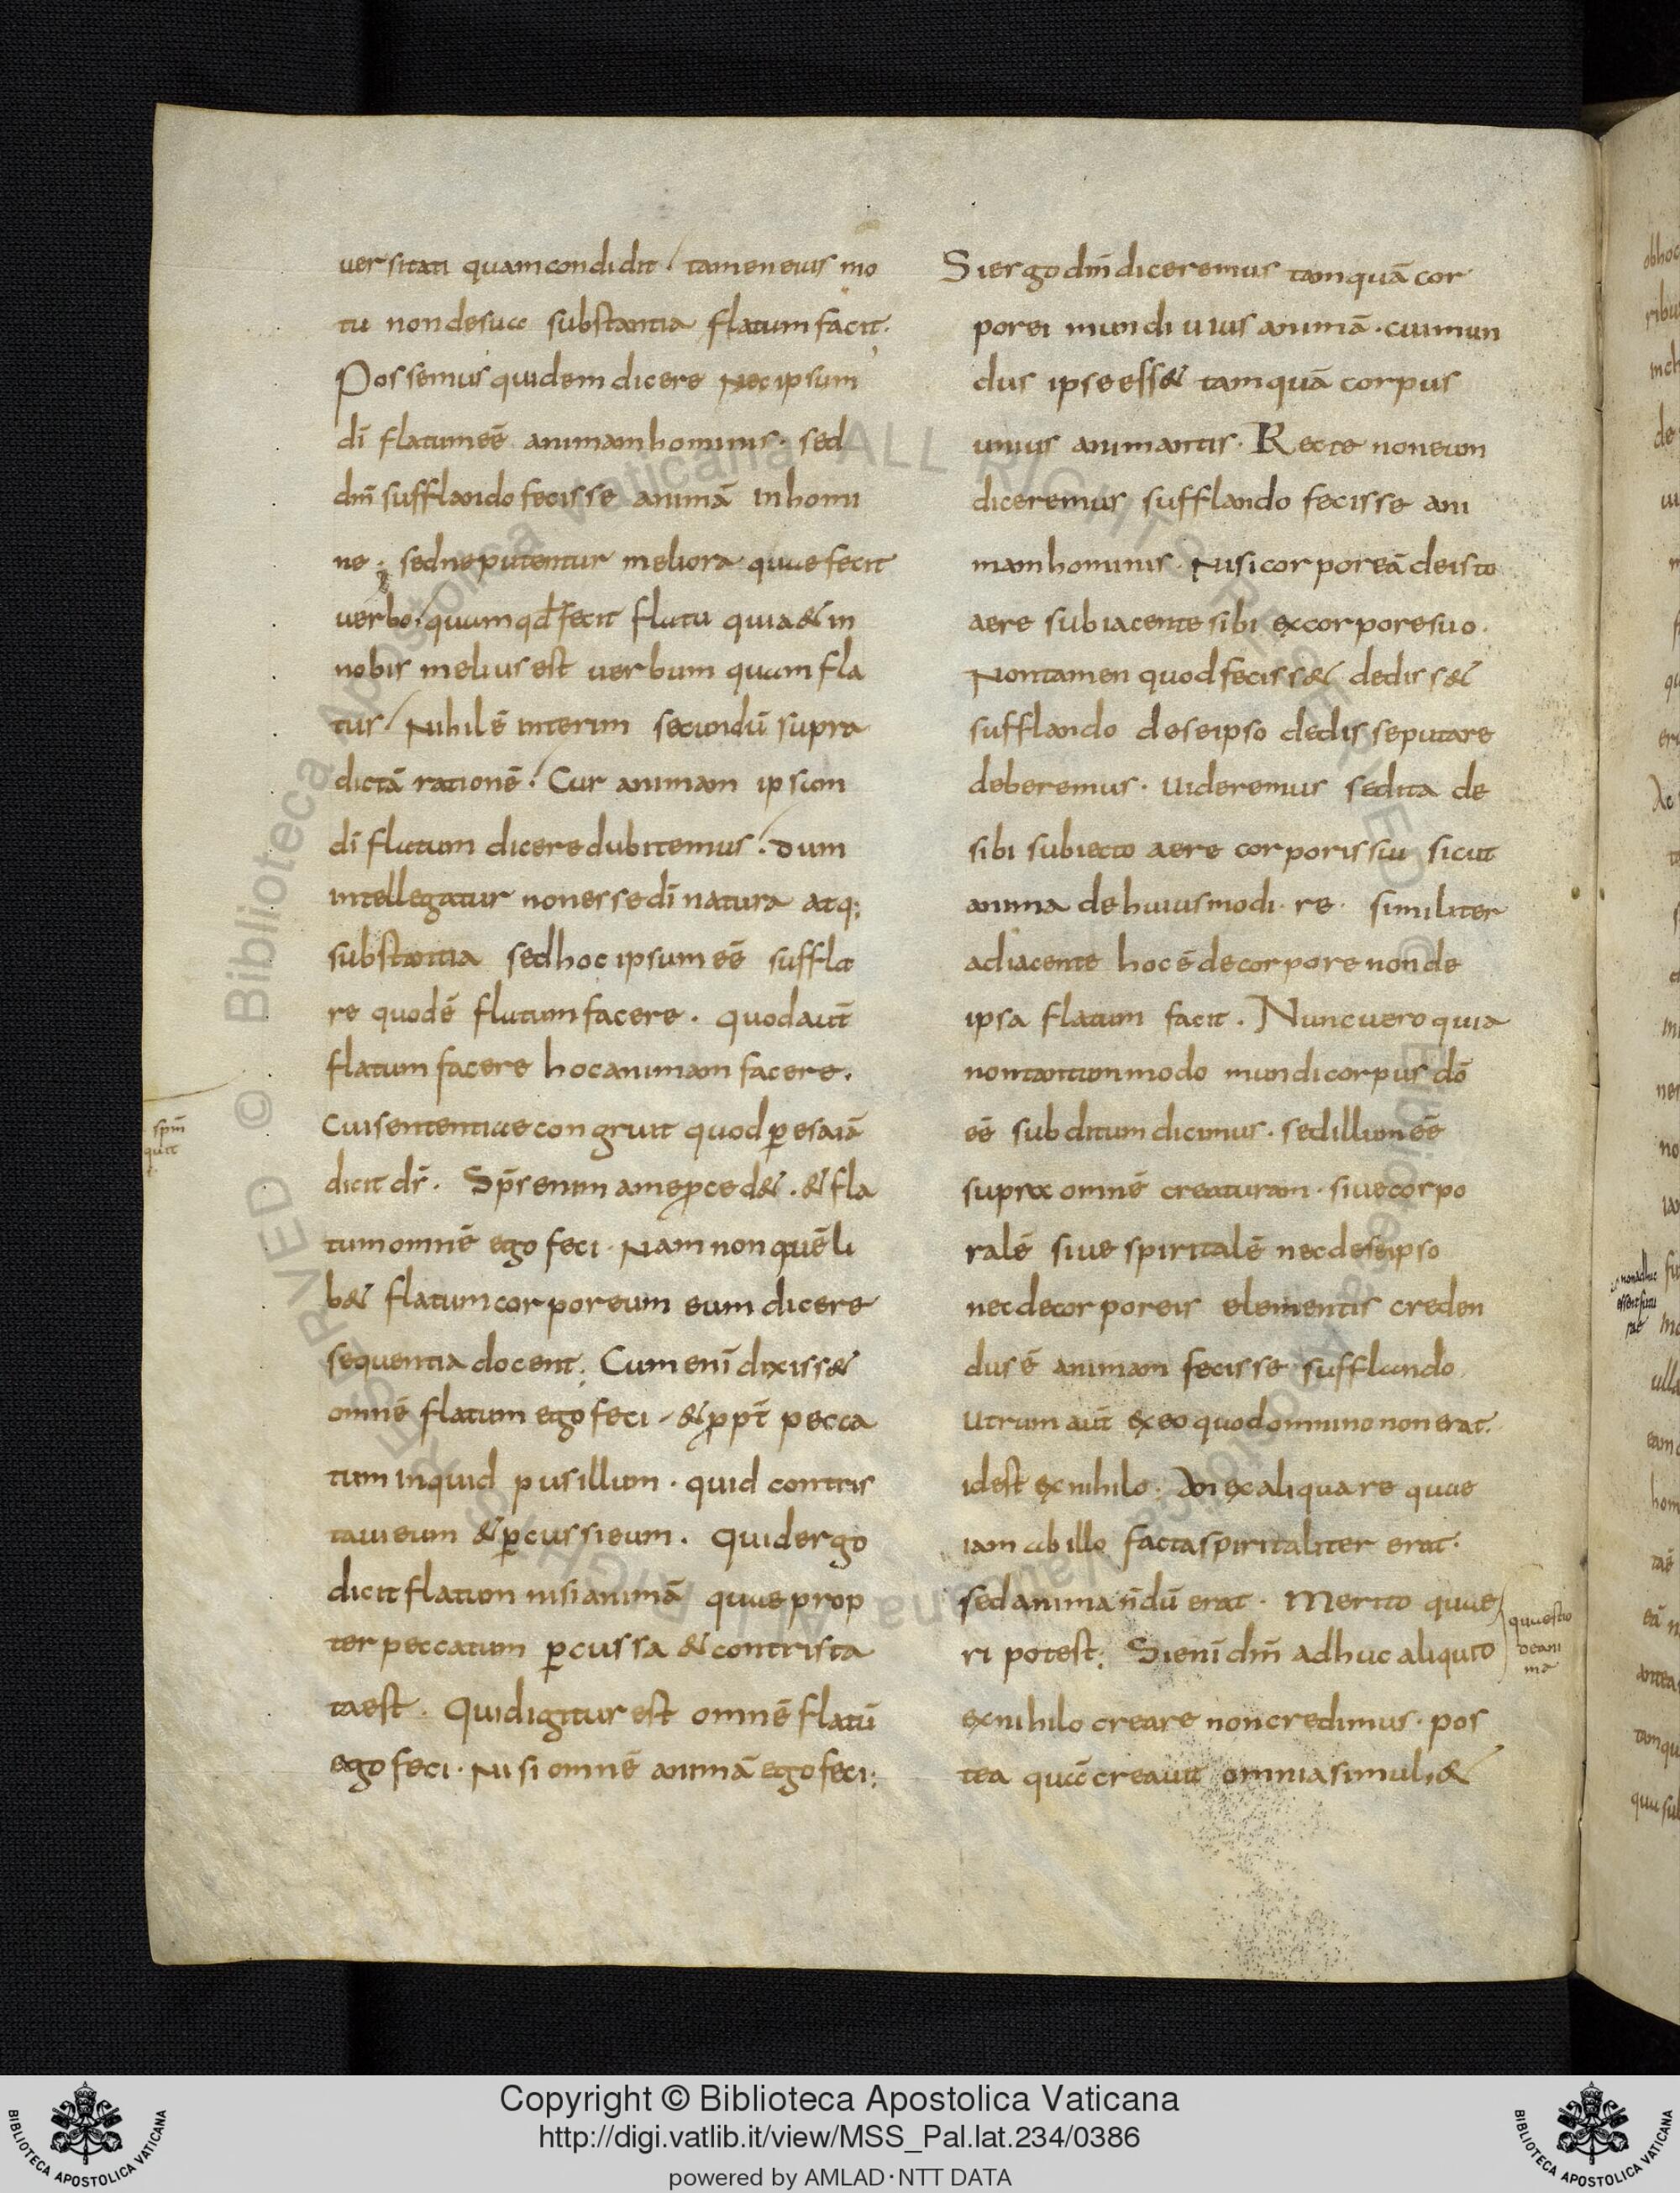 uersitati quam condidit. tamen eius mo
tu non de sua substantia flatum facit.
Possemus quidem dicere nec ipsum
dī flatum eē animam hominis. sed
dm̄ sufflando fecisse animā in homi
ne; sed ne putentur meliora quae fecit
uerbo. quam qd̄ fecit flatu quia & in
nobis melius est uerbum quam fla
tus. Nihil ē interim secundū supra
dictā rationē. Cur animam ipsam
dī flatum dicere dubitemus. dum
intellegatur non esse dī natura atq;
substantia sed hoc ipsum eē suffla
re quod ē flatum facere. quod aut̄
flatum facere hoc animam facere.
Cui sententiae congruit quod ꝑ esaiā
dicit ds̄. Sp̄s enim a me ꝓced&. & fla
tum omnē ego feci. Nam non quēli
b& flatum corporeum eum dicere
sequentia docent; Cum enī dixiss&
omnē flatum ego feci. & ꝓpt̄ pecca
tum inquid pusillum. quid contris
taui eum & ꝑcussi eum. Quid ergo
dicit flatum nisi animā quae prop
ter peccatum ꝑcussa & contrista
ta est. Quid igitur est omnē flatū
ego feci. Nisi omnē animā ego feci;
spm̄
quit
Si ergo dm̄ diceremus tamquā cor
porei mundi uius animā. cui mun
dus ipse ess& tamquā corpus
unius animantis. Recte non eum
diceremus sufflando fecisse ani
mam hominis. Nisi corporeā de isto
aere subiacente sibi ex corpore suo.
Non tamen quod feciss& dediss&
sufflando de se ipso dedisse putare
deberemus. uideremus sed ita de
sibi subiecto aere corporis sui sicut
anima de huiusmodi re. similiter
adiacente hoc ē de corpore non de
ipsa flatum facit. Nunc uero quia
non tantummodo mundi corpus dō
eē subditum dicimus. sed illum eē
supra omnē creaturam. siue corpo
ralē siue spiritalē nec de se ipso
nec de corporeis elementis creden
dus ē animam fecisse sufflando.
Utrum aut̄ ex eo quod omnino non erat.
id est ex nihilo. An ex aliqua re quae
iam ab illo facta spiritaliter erat.
sed anima n̄dū erat. Merito quae
ri potest; Si enī dm̄ adhuc aliquit
ex nihilo creare non credimus. pos
tea quā creauit omnia simul, &
quaestio
de ani
ma
Copyright © Biblioteca Apostolica Vaticana
http://digi.vatlib.it/view/MSS_Pal.lat.234/0386
powered by AMLAD·NTT DATA
BIBLIOTECA APOSTOLICA VATICANA
BIBLIOTECA APOSTOLICA VATICANA